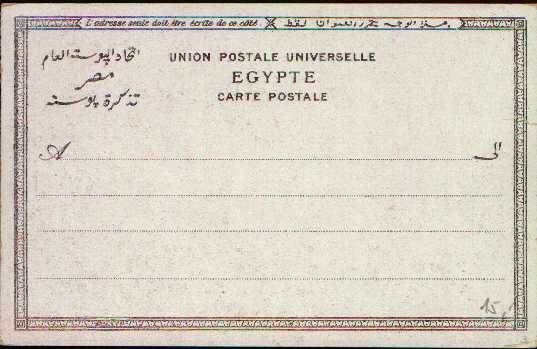 L'adresse seule doit être écrite de ce côté. هذا الوجه يحرر العنوان فقط
UNION POSTALE UNIVERSELLE
EGYPTE
CARTE POSTALE
اتحاد البوسته العام
مصر
تذكرة بوسته
A الى
15